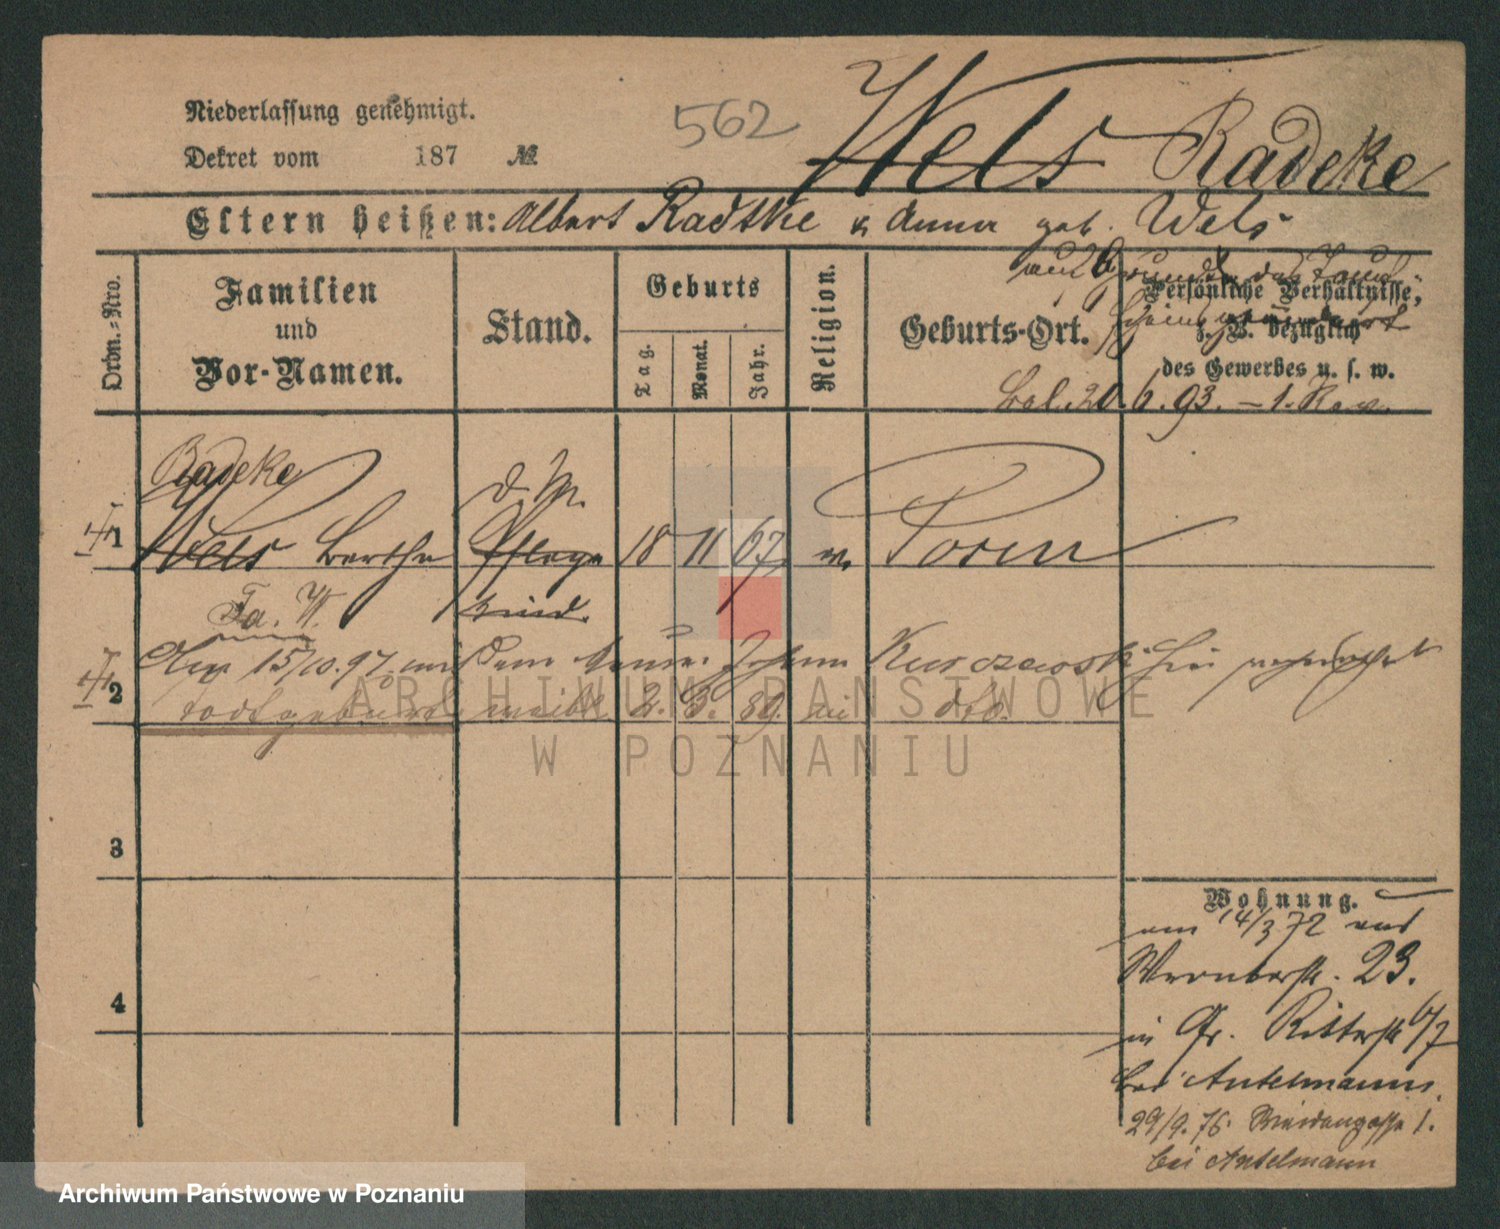 Niederlassung genehmigt.
Dekret vom 187 №
562
Wels Radeke
Eltern heißen: Albert Radtke & Anna geb. Wels
auf Grund des Tauf-
scheins
bol. 20.6.93. – 1. Rev.
Ordn.-Nro.
Familien
und
Vor-Namen.
Stand.
Geburts
Tag.
Monat.
Jahr.
Religion.
Geburts-Ort.
Persönliche Verhältnisse,
z. B. bezüglich
des Gewerbes u. s. w.
Radeke
1 Wels Bertha
d. M.
Pflege
kind.
18 11 67 Posen
Ta. W.
2 15/10.97. dem Johann Kurczewski hier
todtgeburt weibl. 2. 3. 89. dto.
3
4
Wohnung.
am 14/3 72 aus
Wronkerstr. 23.
in Gr. Ritterstr 6/7
bei Antelmanns.
29/9.76. 1.
bei Antelmann
ARCHIWUM PAŃSTWOWE
W POZNANIU
Archiwum Państwowe w Poznaniu